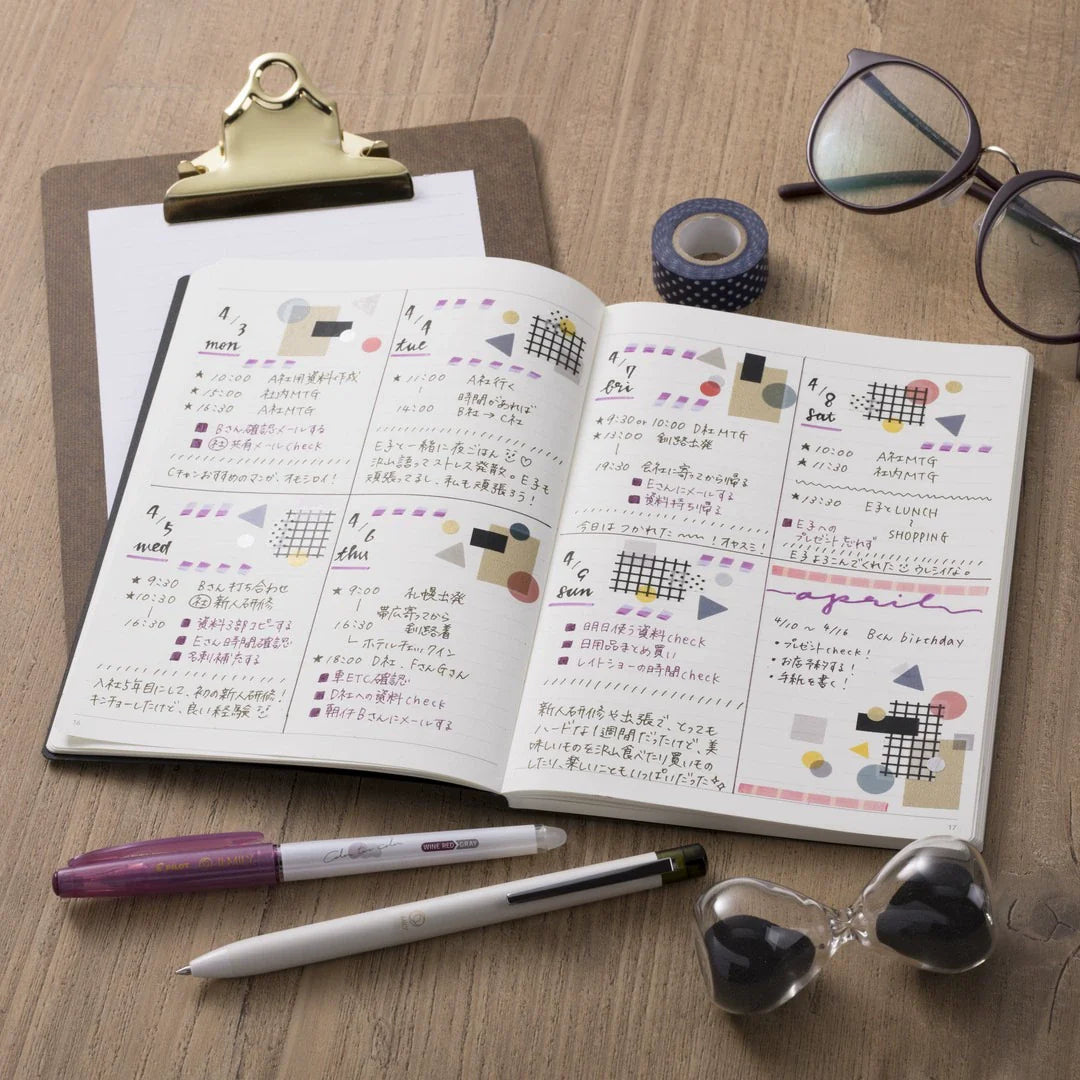 4/3
mon
★ 10:00 A社用資料作成
★ 15:00 社内MTG
★ 16:30 A社MTG
Bさん確認メールする
社 共有メールcheck
Cチャンおすすめのマンガ、オモシロイ!
4/4
tue
★ 11:00 A社行く
時間があれば
14:00 B社→C社
E子と一緒に夜ごはん ♡
沢山語ってストレス発散。E子も
頑張ってるし、私も頑張ろう!
4/5
wed
★ 9:30 Bさん打ち合わせ
★10:30 社 新人研修
|
16:30 資料3部コピーする
Eさん時間確認
名刺補充する
入社5年目にして、初の新人研修!
キンチョーしたけど、良い経験
4/6
thu
★ 9:00 札幌出発
| 帯広寄ってから
16:30 釧路着
ホテルチェックイン
★ 18:00 D社、FさんGさん
車ETC確認
D社への資料check
朝イチBさんにメールする
16
4/7
fri
★ 9:30 or 10:00 D社MTG
★ 13:00 釧路出発
|
19:30 会社に寄ってから帰る
Eさんにメールする
資料持ち帰る
今日はつかれた〜〜!オヤスミ!
4/8
sat
★ 10:00 A社MTG
★ 11:30 社内MTG
★ 13:30 E子とLUNCH
SHOPPING
E子への
プレゼント忘れず
E子よろこんでくれた ウレシイな。
4/9
sun
明日使う資料check
日用品まとめ買い
レイトショーの時間check
新人研修や出張で、とっても
ハードな1週間だったけど、美
味しいものを沢山食べたり買いもの
したり、楽しいこともいっぱいだった☆
april
4/10 〜 4/16 Bくん birthday
・プレゼントcheck!
・お店予約する!
・手紙を書く!
17
PILOT ILMILY
WINE RED GRAY